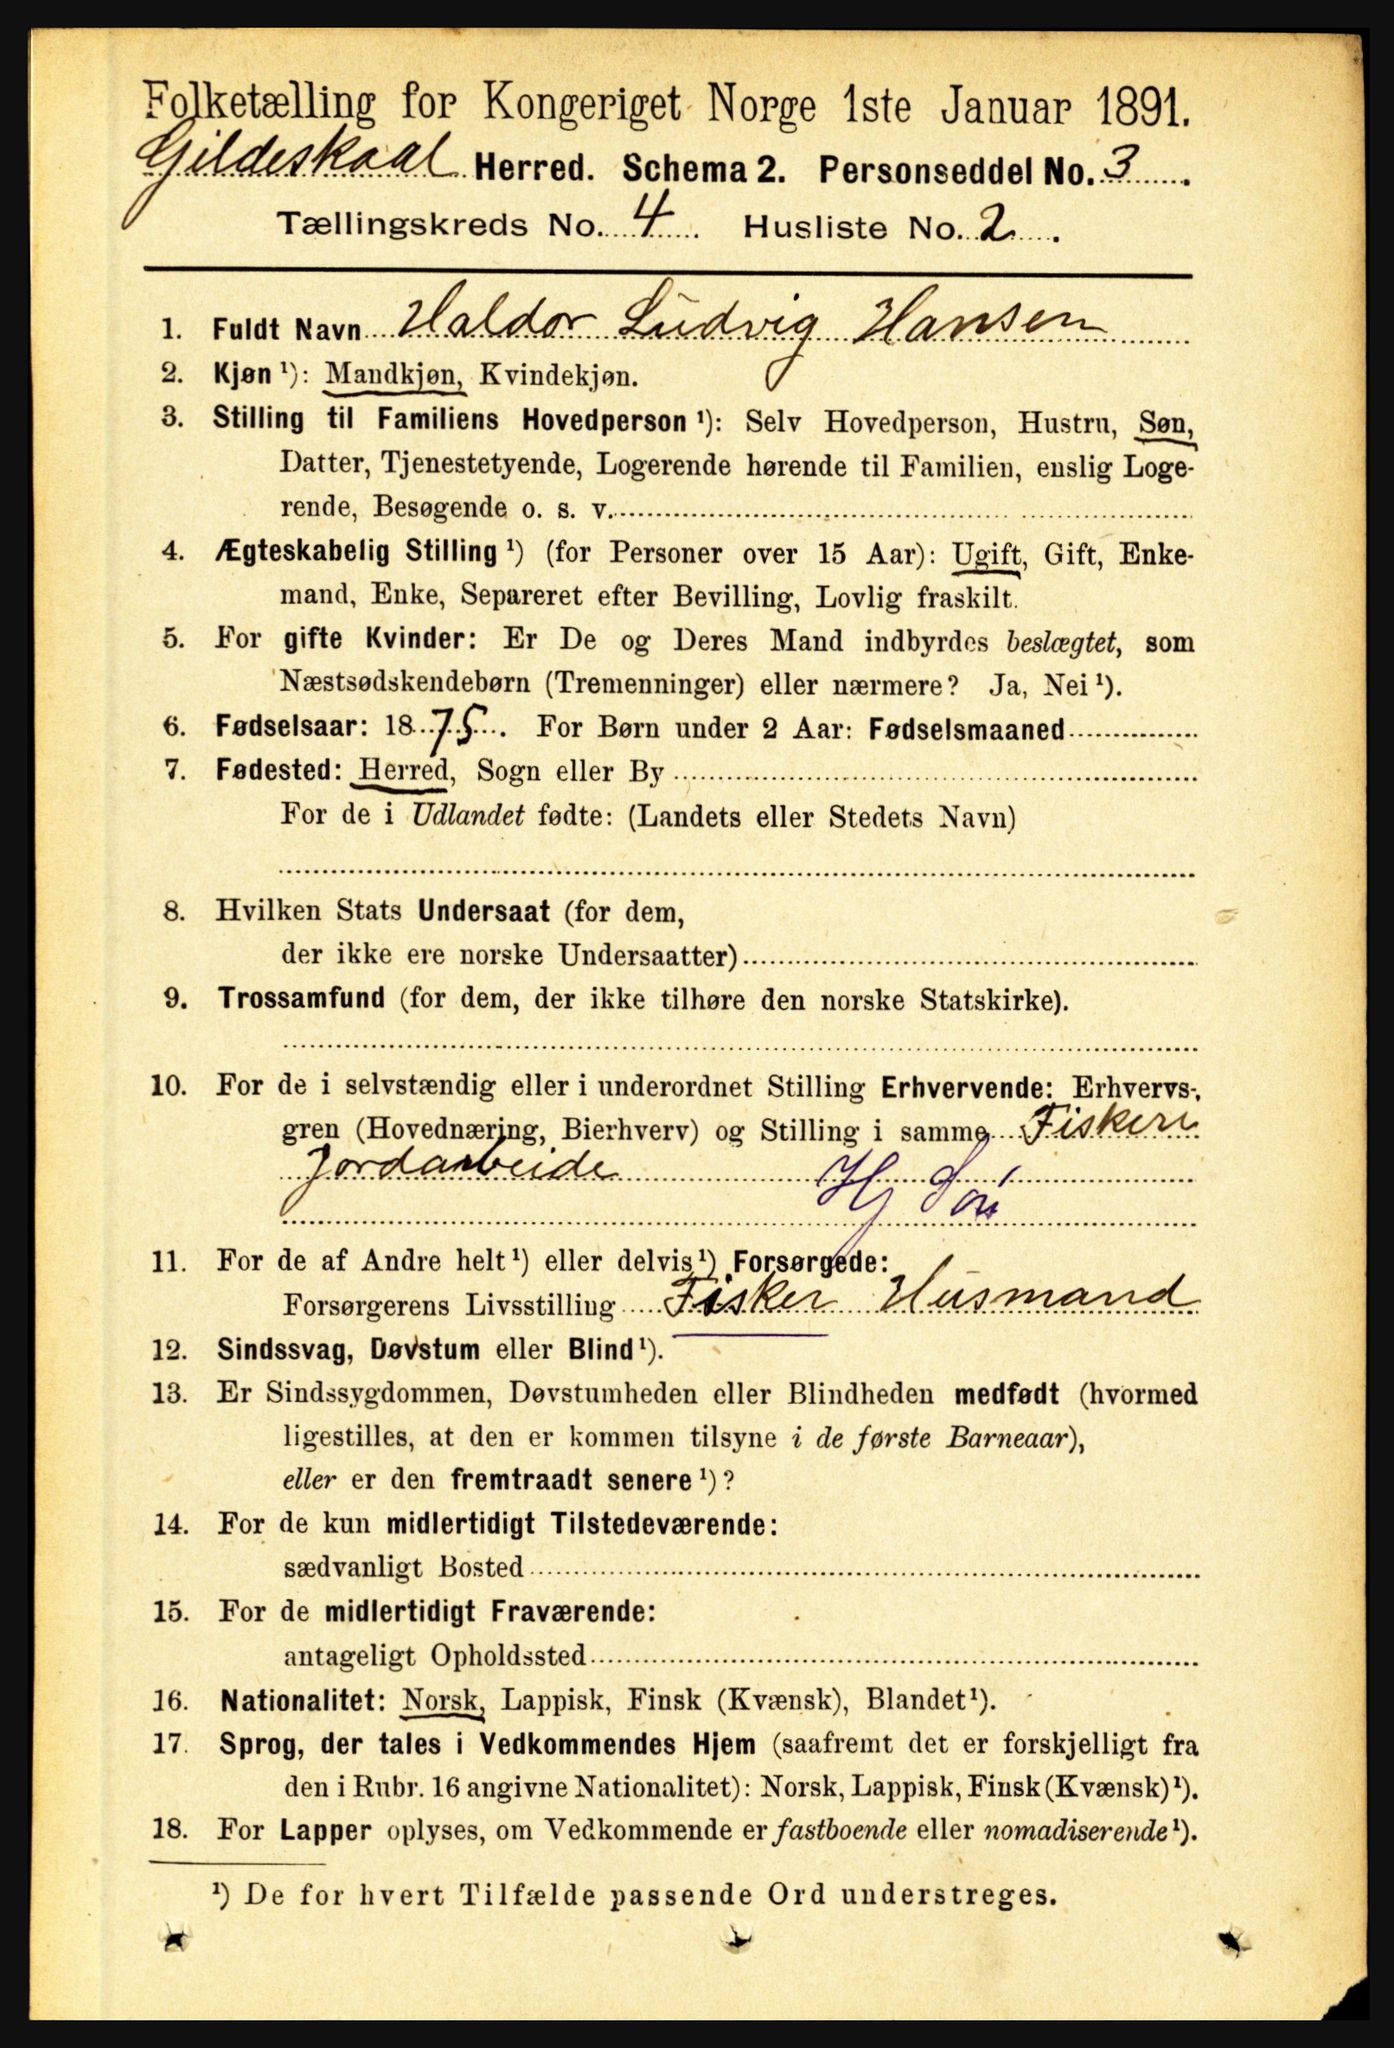 Folketælling for Kongeriget Norge 1ste Januar 1891.
Gildeskaal Herred. Schema 2. Personseddel No. 3.
Tællingskreds No. 4. Husliste No. 2.
1. Fuldt Navn Haldor Ludvig Hansen
2. Kjøn ¹): Mandkjøn, Kvindekjøn.
3. Stilling til Familiens Hovedperson ¹): Selv Hovedperson, Hustru, Søn,
Datter, Tjenestetyende, Logerende hørende til Familien, enslig Loge-
rende, Besøgende o. s. v.
4. Ægteskabelig Stilling ¹) (for Personer over 15 Aar): Ugift, Gift, Enke-
mand, Enke, Separeret efter Bevilling, Lovlig fraskilt.
5. For gifte Kvinder: Er De og Deres Mand indbyrdes beslægtet, som
Næstsødskendebørn (Tremenninger) eller nærmere? Ja, Nei ¹).
6. Fødselsaar: 1875. For Børn under 2 Aar: Fødselsmaaned
7. Fødested: Herred, Sogn eller By
For de i Udlandet fødte: (Landets eller Stedets Navn)
8. Hvilken Stats Undersaat (for dem,
der ikke ere norske Undersaatter)
9. Trossamfund (for dem, der ikke tilhøre den norske Statskirke).
10. For de i selvstændig eller i underordnet Stilling Erhvervende: Erhvervs-
gren (Hovednæring, Bierhverv) og Stilling i samme Fiskeri
Jordarbeide Hj Søn
11. For de af Andre helt ¹) eller delvis ¹) Forsørgede:
Forsørgerens Livsstilling Fisker Husmand
12. Sindssvag, Døvstum eller Blind ¹).
13. Er Sindssygdommen, Døvstumheden eller Blindheden medfødt (hvormed
ligestilles, at den er kommen tilsyne i de første Barneaar),
eller er den fremtraadt senere ¹)?
14. For de kun midlertidigt Tilstedeværende:
sædvanligt Bosted
15. For de midlertidigt Fraværende:
antageligt Opholdssted
16. Nationalitet: Norsk, Lappisk, Finsk (Kvænsk), Blandet ¹).
17. Sprog, der tales i Vedkommendes Hjem (saafremt det er forskjelligt fra
den i Rubr. 16 angivne Nationalitet): Norsk, Lappisk, Finsk (Kvænsk) ¹).
18. For Lapper oplyses, om Vedkommende er fastboende eller nomadiserende ¹).
¹) De for hvert Tilfælde passende Ord understreges.